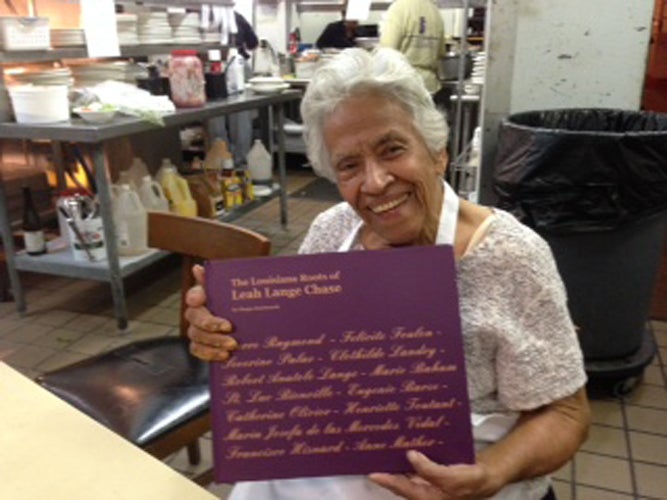 The Louisiana Roots of
Leah Lange Chase
Raymond - Felicite Foulon -
Severine Palao - Clothilde Landry -
Robert Anatole Lange - Marie Rabaza
St. Luc Bienville - Eugenie Barco -
Catherine Olivier - Henriette Toutant -
Maria Josefa de las Mercedes Vidal -
Francisco Hisnard - Anne Mather -